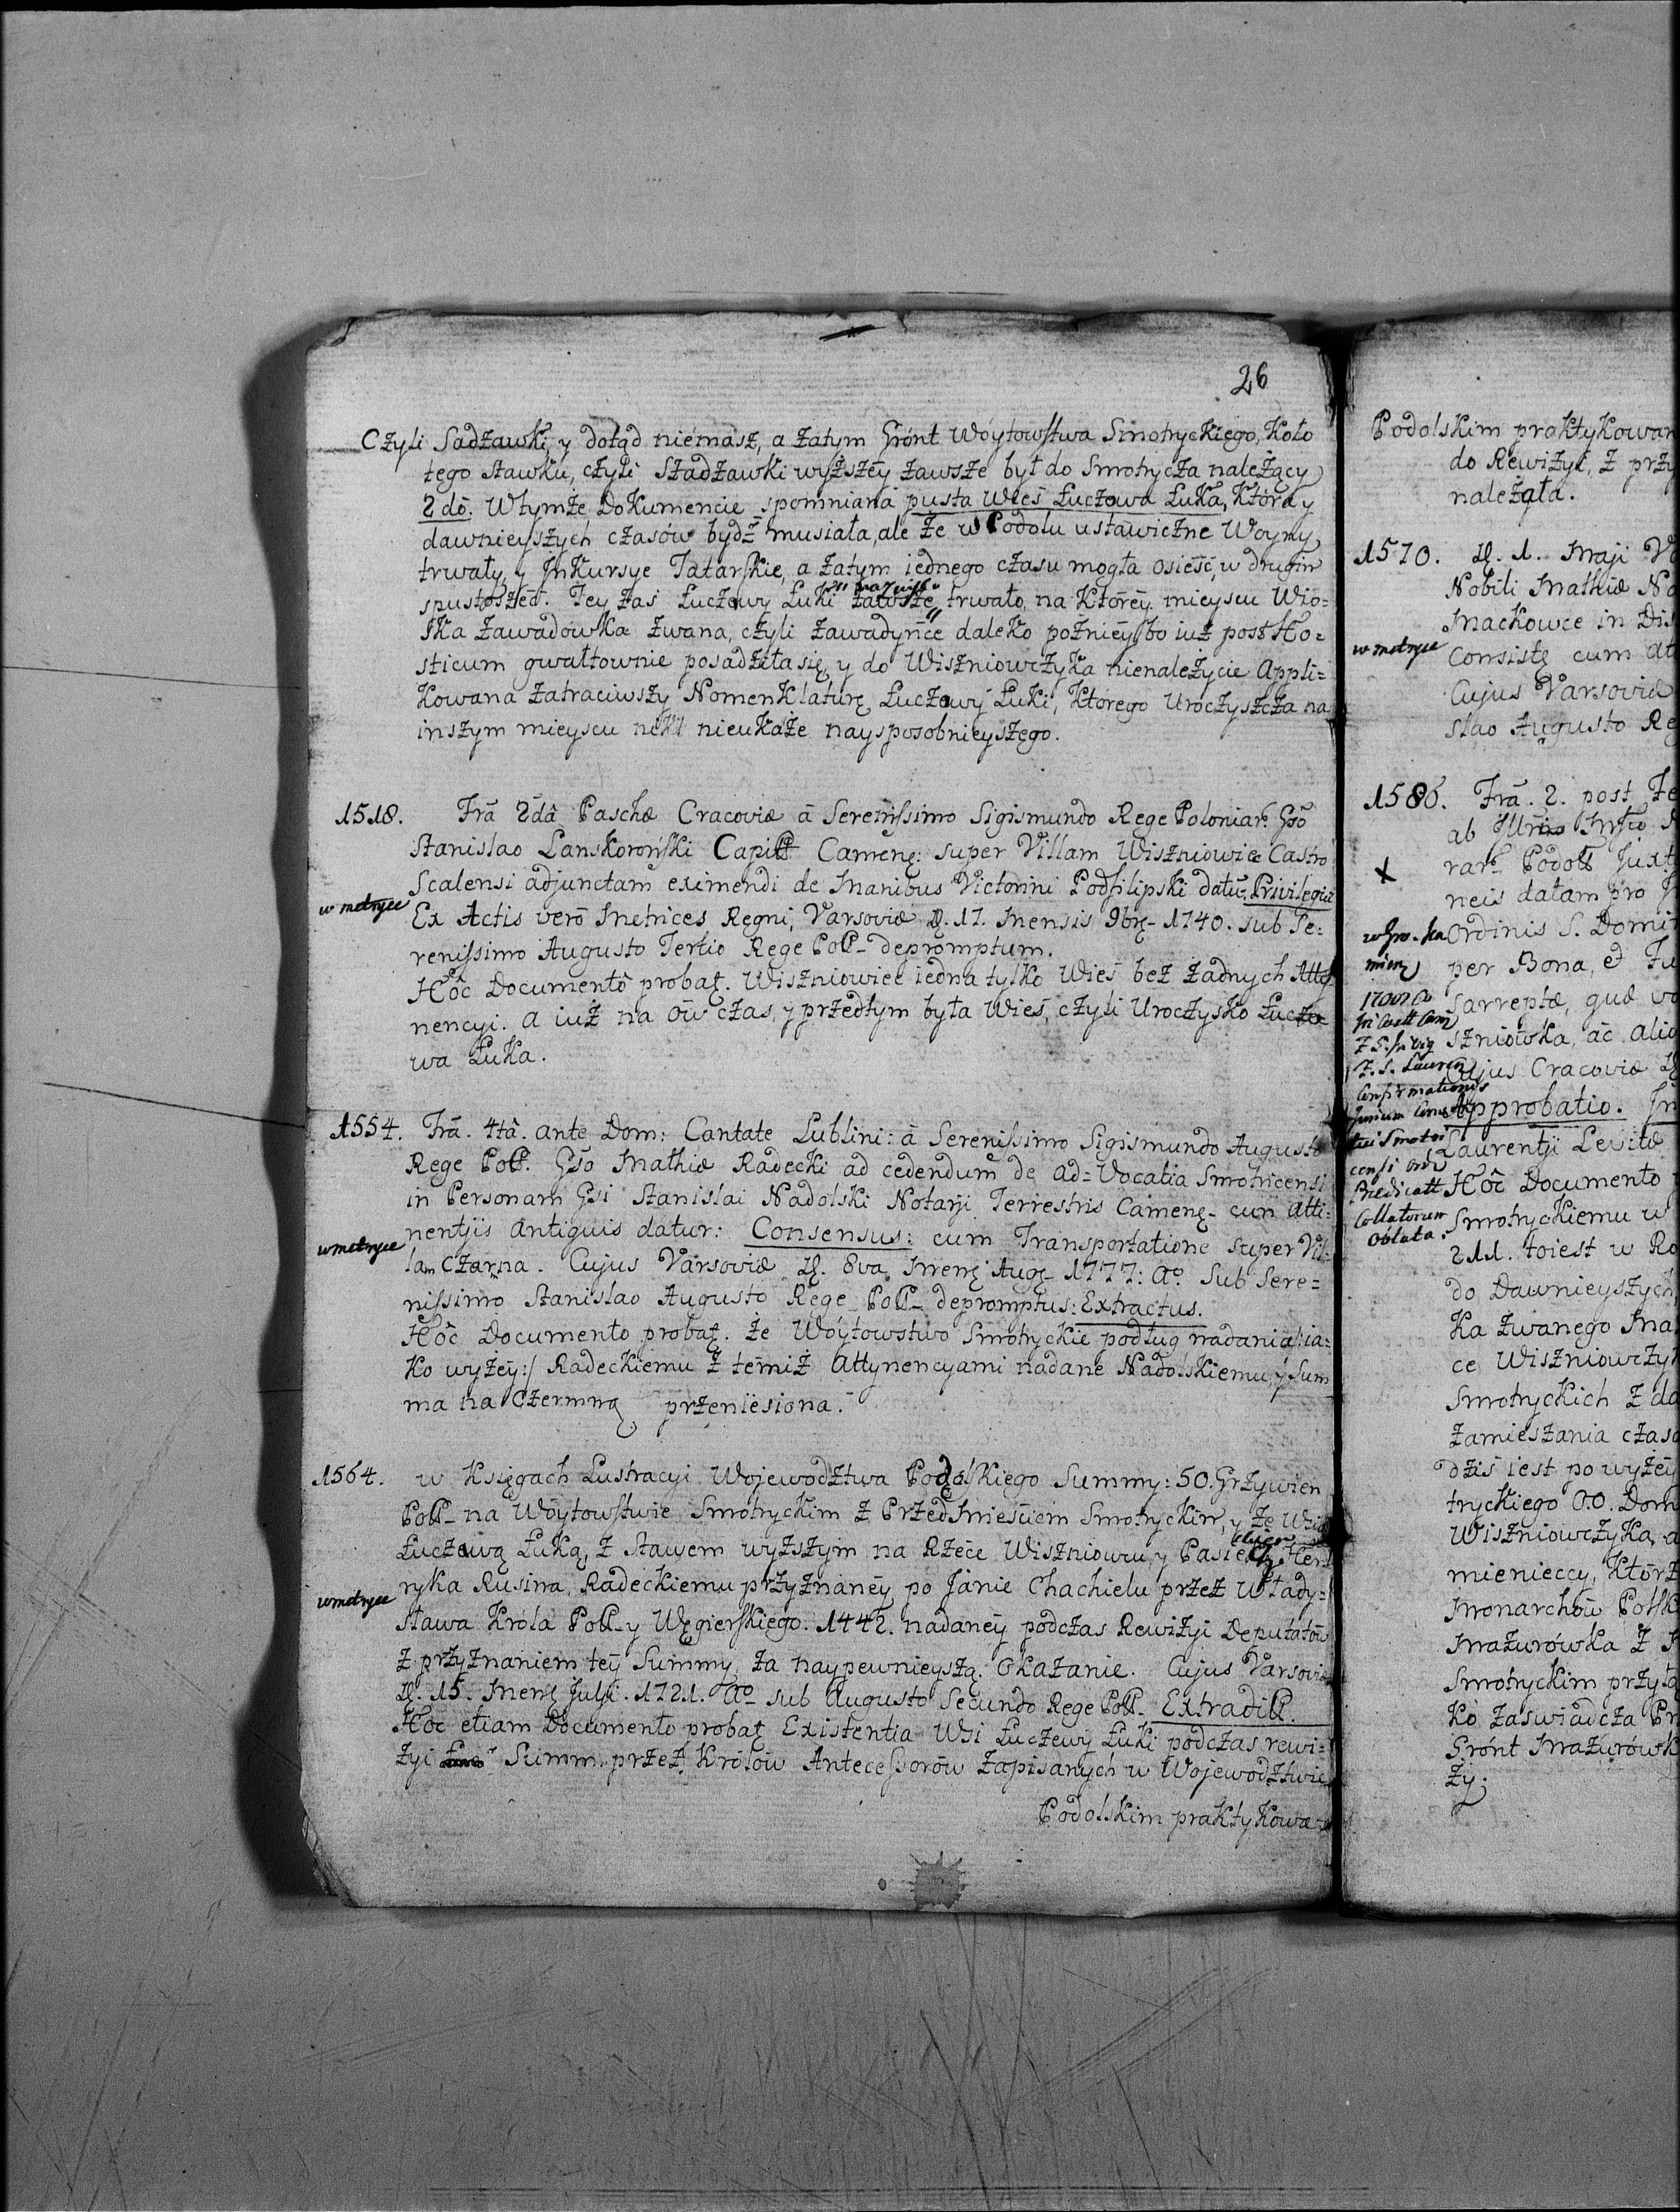 26
Czyli Sadzawki, y dotąd niémasz, a zatym Grónt Wóytowstwa Smotryckiego, Koło
tego stawku, czyli Szadzawki wyższéy zawsze był do Smotrycza należący
2dó. Wtymże Dokumencie spomniana pusta Wieś Łuczowa Łuka, Która y
dawnieyszych czasów bydź musiała, ale że w Podolu ustawiczne Woyny
trwały, y Jnkursye Tatarskie, a zatym iednego czasu mogła osieść, w drugim
spustoszeć. Tey zaś Łuczowy Łuki nazwisko zawsze trwało, na Któréy mieyscu Wio=
ska Zawadowka zwana, czyli Zawadyńce daleko poźniéy bo iuż post Ho=
sticum gwałtownie posadziła się, y do Wiszniowczyka nienależycie Appli=
Kowana zatraciwszy Nomenklaturę Łuczowy Łuki, Którego Uroczyszcza na
inszym mieyscu nikt nieukaże naysposobnieyszego.
1518. Frã 2dâ Paschæ Cracoviæ â Serenissimo Sigismundo Rege Poloniar. Gso
Stanislao Lanskoroński Capitt Camenę: super Villam Wiszniowiec Castro
Scalensi adjunctam eximendi de Manibus Victorini Podfilipski datū: Privilegiū
w metryce
Ex Actis verò Metrices Regni, Varsoviæ D. 17. Mensis 9brę 1740. sub Se=
renissimo Augusto Tertio Rege Poll depromptum.
Hôc Documentô probatę. Wiszniowiec iedna tylko Wieś bez żadnych Atty
nencyi. a iuż na ów czas, y przedtym była Wieś, czyli Uroczysko Łuczo
wa Łuka.
1554. Frã. 4tâ. ante Dom: Cantate Lublini: â Serenissimo Sigismundo Augusto
Rege Poll. Gso Mathiæ Radecki ad cedendum de ad=Vocatia Smotricensi
in Personam Gsi Stanislai Nadolski Notarji Terrestris Camenę cum Atti=
nentijs antiquis datur: Consensus: cum Transportatione super Vil=
w metryce
lam Czarna. Cujus Varsoviæ D. 8va Menę Augę 1777: Ao. sub Sere=
nissimo Stanislao Augusto Rege Poll depromptus: Extractus.
Hôc Documento probatę. że Wóytowstwo Smotryckie podług nadania /:ia=
Ko wyżéy:/ Radeckiemu z témiż Attynencyami nadane Nadolskiemu, y Sum
ma na Czermną przeniésiona.
1564. w Księgach Lustracyi Wojewodztwa Podolskiego Summy: 50. Grzywien
Poll na Wóytowstwie Smotryckim z Przedmieściem Smotryckim, y ze Wsią
Łuczową Łuką, z Stawem wyższym na Rzéce Wiszniowcu, y
ryka Rusina, Radeckiemu przyznanéy po Janie Chachielu przez Włady=
w metryce
sława Króla Poll y Węgierskiego. 1442. nadanéy podczas Rewizyi Deputatów
z przyznaniem téy Summy, za naypewnieyszą. Okazanie. Cujus Varsoviæ
D. 15. Menę Julji. 1721. Ao sub Augusto Secundo Rege Poll. Extraditt.
Hôc etiam Documento probatę Existentia Wsi Łuczowy Łuki podczas rewi=
zyi Summ przez Królów Antecessorów zapisanych w Wojewodztwie
Podolskim praktykowa
Podolskim praktykowan
do Rewizyi, z przy
należała.
1570. D. 1. Maji
Nobili Mathiæ
Mackowce in Dis
w metryce
Consistę cum At
Cujus Varsoviæ
slao Augusto Re
1586. Frã. 2. post
ab
x
rar. Podoll Juxt
neis datam pro
Ordinis S. Domin
per Bona, et
sarreptæ, quæ
szniówka, ác alio
Cujus Cracoviæ
Confirmationis
Approbatio.
Laurentji Levitæ
Hôc Documento
Collatorum
Smotryckiemu w
Oblata.
211. toiest w Ro
do Dawnieyszych
Ka zwanego Ma
ce Wiszniowczy
Smotryckich z da
zamieszania czaso
dziś iest po wyżéy
tryckiego O.O. Dom
Wiszniowczyka, a
mienieccy, Którz
Monarchów Polsk
Mazurówka z
Smotryckim przyła
Ko zaswiadcza Pr
Grónt Mazurówk
ży.